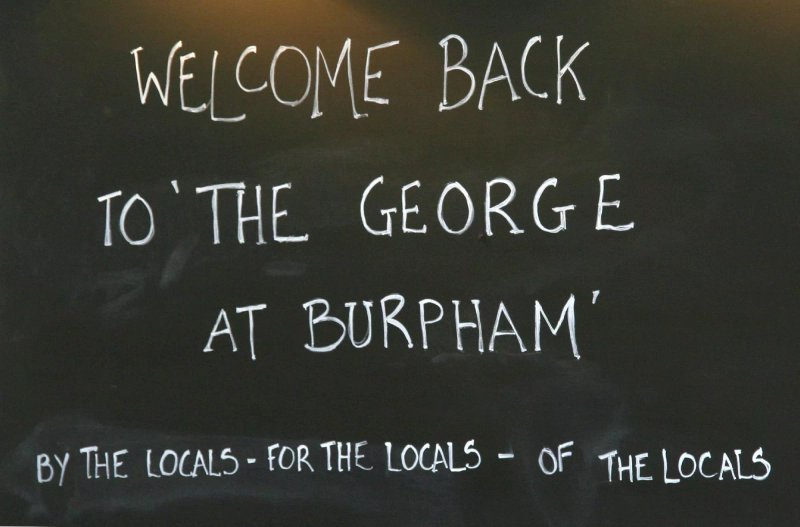 WELCOME BACK
TO 'THE GEORGE
AT BURPHAM'
BY THE LOCALS - FOR THE LOCALS - OF THE LOCALS